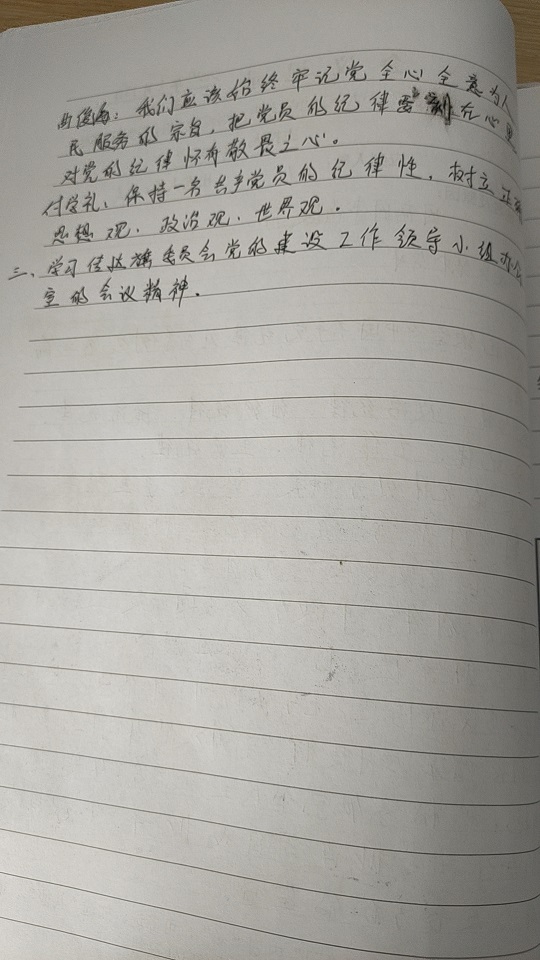 我们应该始终牢记党全心全意为人
民服务的宗旨，把党员的纪律要刻在心里
对党的纪律怀有敬畏之心。
付学礼：保持一名共产党员的纪律性，树立正确
思想观、政治观、世界观。
三、学习传达旗委员会党的建设工作领导小组办公
室的会议精神.